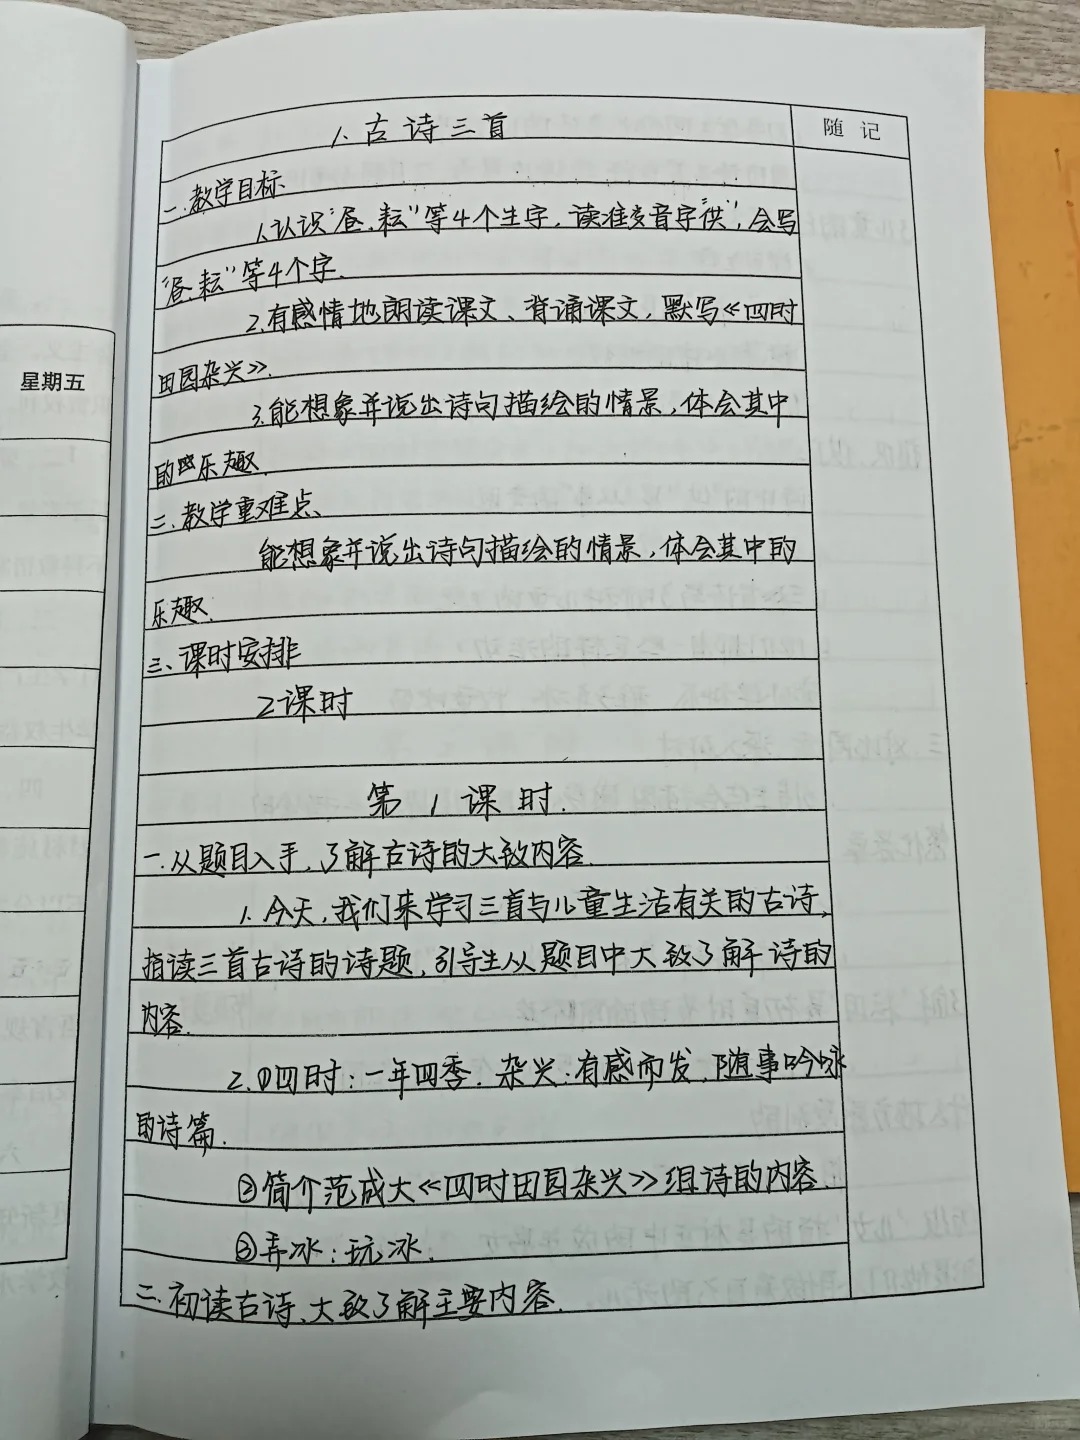 1. 古诗三首
随 记
一. 教学目标
1.认识“昼、耘”等4个生字，读准多音字“供”，会写
“昼、耘”等4个字.
2.有感情地朗读课文、背诵课文，默写《四时
田园杂兴》.
3.能想象并说出诗句描绘的情景，体会其中
的乐趣.
二、教学重难点、
能想象并说出诗句描绘的情景，体会其中的
乐趣.
三、课时安排
2课时
第 1 课时.
一.从题目入手，了解古诗的大致内容.
1. 今天，我们来学习三首与儿童生活有关的古诗，
指读三首古诗的诗题，引导生从题目中大致了解诗的
内容.
2.①四时：一年四季. 杂兴：有感而发，随事吟咏
的诗篇.
②简介范成大《四时田园杂兴》组诗的内容.
③弄冰：玩冰.
二.初读古诗、大致了解主要内容.
星期五